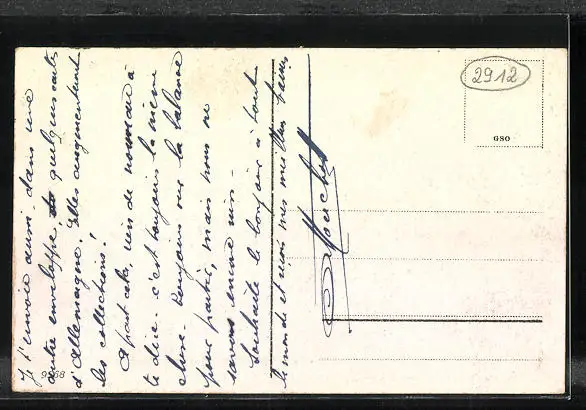 J't'envoie aussi dans une
autre enveloppe quelques cartes
d'Allemagne. Elles augmenteront
les collections!
A part cela, rien de nouveau à
te dire - c'est toujours la même
chose - toujours sur la balance
pour partir, mais nous ne
savons encore rien -
Souhaite le bonjour à tout
le monde et reçois mes meilleurs baisers
9268
2912
GSO